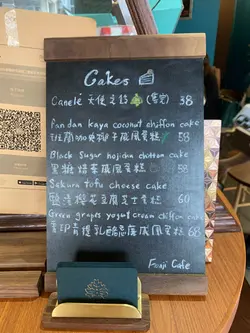 Cakes
Canelé 天使之鈴 (蜜堂) 38
pandan kaya coconut chiffon cake
班蘭咖央椰子戚風蛋糕 58
Black Sugar hojicha chiffon cake
黑糖焙茶戚風蛋糕 58
Sakura tofu cheese cake
鹽漬櫻花豆腐芝士蛋糕 60
Green grapes yogurt cream chiffon cake
香印青提乳酪忌廉戚風蛋糕 68
Fuuji Cafe